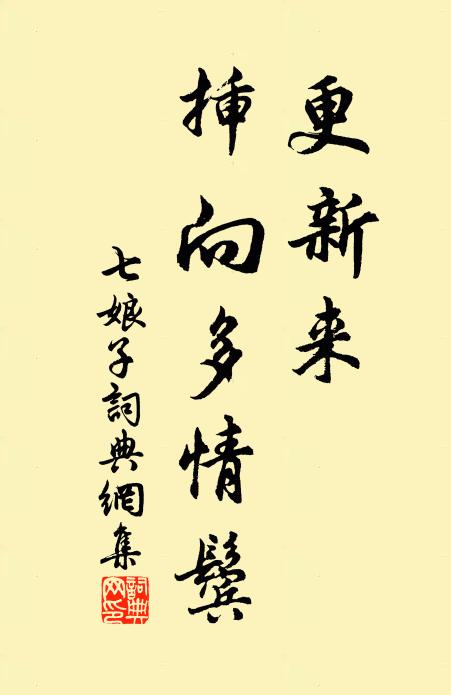 更新来
挿向多情鬓
七娘子詞典網集
詞典
网印